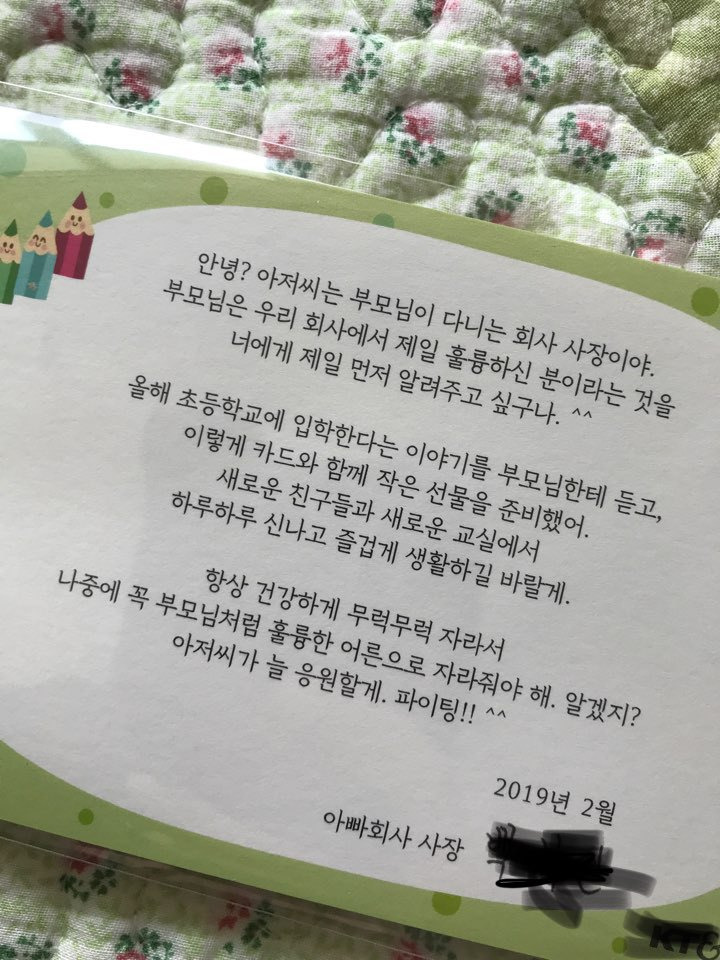 안녕? 아저씨는 부모님이 다니는 회사 사장이야.
부모님은 우리 회사에서 제일 훌륭하신 분이라는 것을
너에게 제일 먼저 알려주고 싶구나. ^^
올해 초등학교에 입학한다는 이야기를 부모님한테 듣고,
이렇게 카드와 함께 작은 선물을 준비했어.
새로운 친구들과 새로운 교실에서
하루하루 신나고 즐겁게 생활하길 바랄게.
항상 건강하게 무럭무럭 자라서
나중에 꼭 부모님처럼 훌륭한 어른으로 자라줘야 해. 알겠지?
아저씨가 늘 응원할게. 파이팅!! ^^
2019년 2월
아빠회사 사장